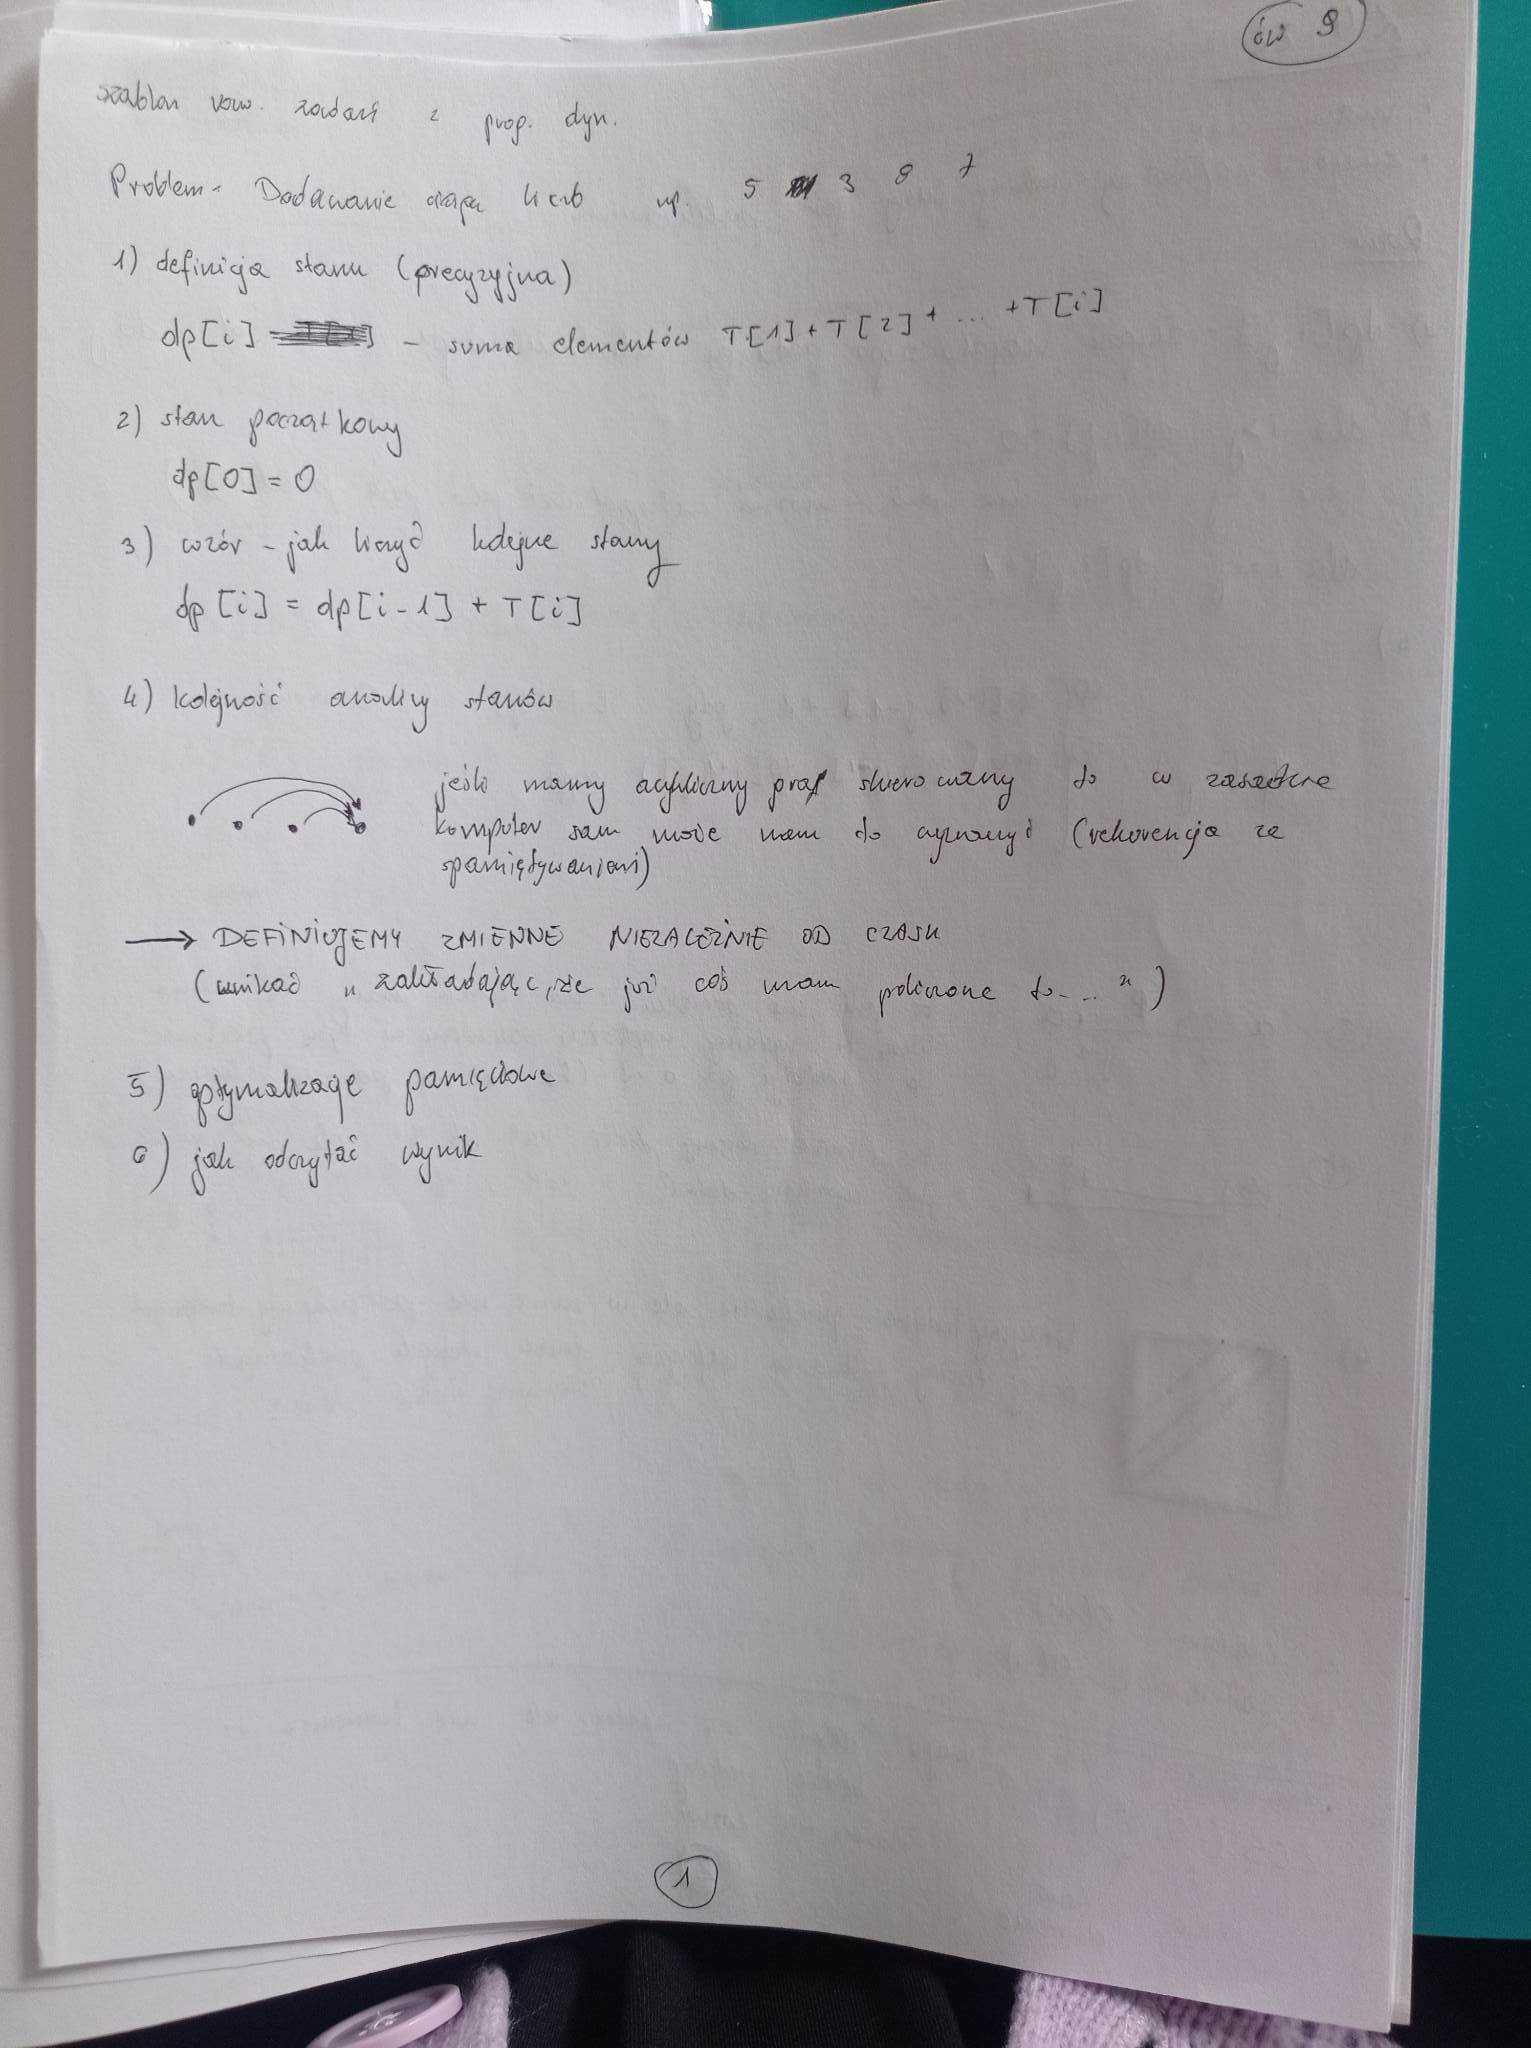 ćw 9
szablon rozw. zadań z prog. dyn.
Problem - Dodawanie ciągu liczb np. 5 3 8 7
1) definicja stanu (precyzyjna)
dp[i] - suma elementów T[1]+T[2]+...+T[i]
2) stan początkowy
dp[0]=0
3) wzór - jak liczyć kolejne stany
dp[i] = dp[i-1] + T[i]
4) kolejność analizy stanów
jeśli mamy acykliczny graf skierowany to w zasadzie
komputer sam może nam to wyznaczyć (rekurencja ze
spamiętywaniem)
→ DEFINIUJEMY ZMIENNE NIEZALEŻNIE OD CZASU
(unikać "zakładając, że już coś mam policzone to... ")
5) optymalizacje pamięciowe
6) jak odczytać wynik
1